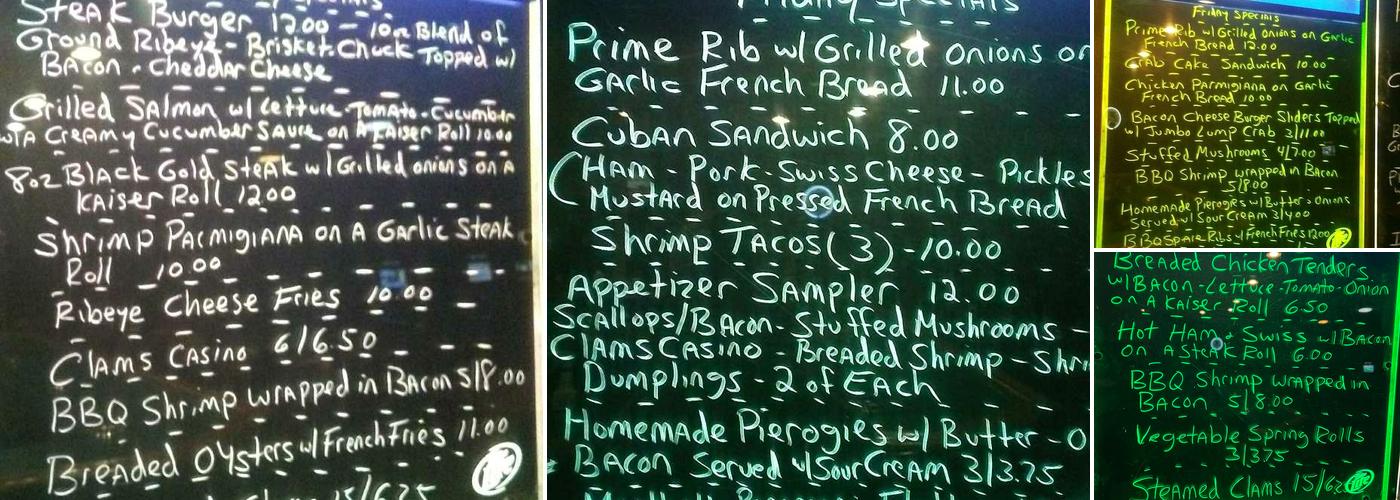 Steak Burger 12.00 - 10oz Blend of
Ground Ribeye - Brisket, Chuck Topped w/
Bacon - Cheddar Cheese
Grilled Salmon w/ Lettuce - Tomato - Cucumber
w/A Creamy Cucumber Sauce on A Kaiser Roll 10.00
8oz Black Gold Steak w/ Grilled onions on A
Kaiser Roll 12.00
Shrimp Parmigiana on A Garlic Steak
Roll 10.00
Ribeye Cheese Fries 10.00
Clams Casino 6/6.50
BBQ Shrimp wrapped in Bacon 5/8.00
Breaded Oysters w/ French Fries 11.00
Friday Specials
Prime Rib w/ Grilled onions on
Garlic French Bread 11.00
Cuban Sandwich 8.00
(Ham - Pork - Swiss Cheese - Pickles
Mustard on Pressed French Bread
Shrimp Tacos (3) - 10.00
Appetizer Sampler 12.00
Scallops/Bacon - Stuffed Mushrooms -
Clams Casino - Breaded Shrimp - Shri
Dumplings - 2 of Each
Homemade Pierogies w/ Butter - O
Bacon Served w/ Sour Cream 3/3.75
Friday Specials
Prime Rib w/ Grilled Onions on Garlic
French Bread 12.00
Crab Cake Sandwich 10.00
Chicken Parmigiana on Garlic
French Bread 10.00
Bacon Cheese Burger Sliders Topped
w/ Jumbo Lump Crab 3/11.00
Stuffed Mushrooms 4/7.00
BBQ Shrimp wrapped in Bacon
5/8.00
Homemade Pierogies w/ Butter + Onions
Served w/ Sour Cream 3/4.00
BBQ Spare Ribs w/ French Fries 12.00
Breaded Chicken Tenders
w/ Bacon - Lettuce - Tomato - Onion
on A Kaiser Roll 6.50
Hot Ham + Swiss w/ Bacon
on A Steak Roll 6.00
BBQ Shrimp wrapped in
Bacon 5/8.00
Vegetable Spring Rolls
3/3.75
Steamed Clams 15/6.2